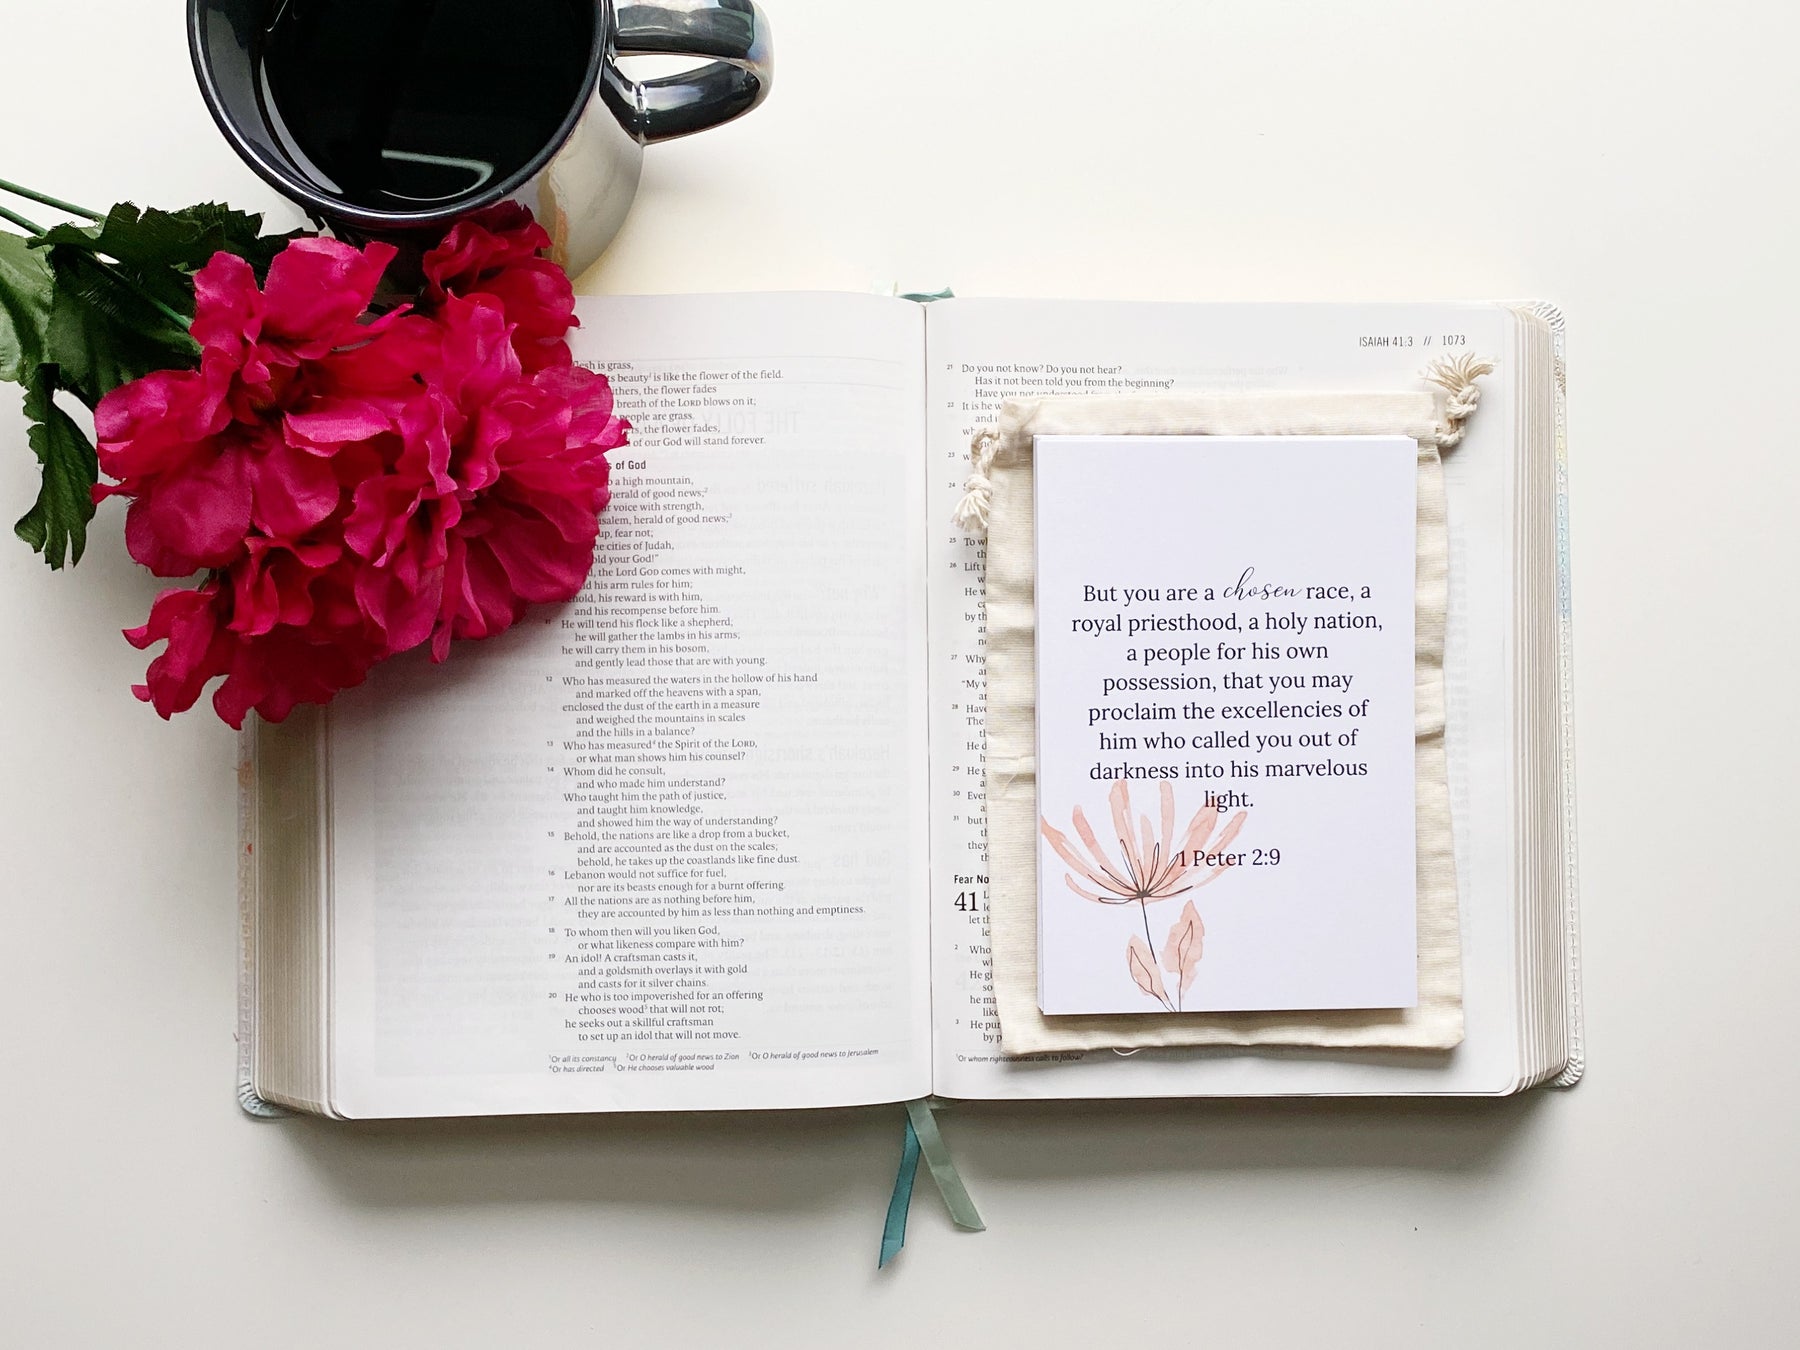 flesh is grass,
its beauty¹ is like the flower of the field.
withers, the flower fades
breath of the LORD blows on it;
people are grass.
the flower fades,
of our God will stand forever.
of God
a high mountain,
herald of good news;²
voice with strength,
herald of good news;³
up, fear not;
cities of Judah,
your God!”
the Lord GOD comes with might,
his arm rules for him;
behold, his reward is with him,
and his recompense before him.
11 He will tend his flock like a shepherd;
he will gather the lambs in his arms;
he will carry them in his bosom,
and gently lead those that are with young.
12 Who has measured the waters in the hollow of his hand
and marked off the heavens with a span,
enclosed the dust of the earth in a measure
and weighed the mountains in scales
and the hills in a balance?
13 Who has measured⁴ the Spirit of the LORD,
or what man shows him his counsel?
14 Whom did he consult,
and who made him understand?
Who taught him the path of justice,
and taught him knowledge,
and showed him the way of understanding?
15 Behold, the nations are like a drop from a bucket,
and are accounted as the dust on the scales;
behold, he takes up the coastlands like fine dust.
16 Lebanon would not suffice for fuel,
nor are its beasts enough for a burnt offering.
17 All the nations are as nothing before him,
they are accounted by him as less than nothing and emptiness.
18 To whom then will you liken God,
or what likeness compare with him?
19 An idol! A craftsman casts it,
and a goldsmith overlays it with gold
and casts for it silver chains.
20 He who is too impoverished for an offering
chooses wood⁵ that will not rot;
he seeks out a skillful craftsman
to set up an idol that will not move.
¹Or all its constancy ²Or O herald of good news to Zion ³Or O herald of good news to Jerusalem
⁴Or has directed ⁵Or He chooses valuable wood
ISAIAH 41:3 // 1073
21 Do you not know? Do you not hear?
Has it not been told you from the beginning?
Have you not understood
22 It is he
and
23
24
25 To
26 Lift
He
by th
27 Why
“My
28 Have
The
He
29 He
30
31 but
they
Fear No
41
let
2 Who
He
so
he
like
3 He
by
¹Or whom righteousness calls to follow?
But you are a chosen race, a
royal priesthood, a holy nation,
a people for his own
possession, that you may
proclaim the excellencies of
him who called you out of
darkness into his marvelous
light.
1 Peter 2:9